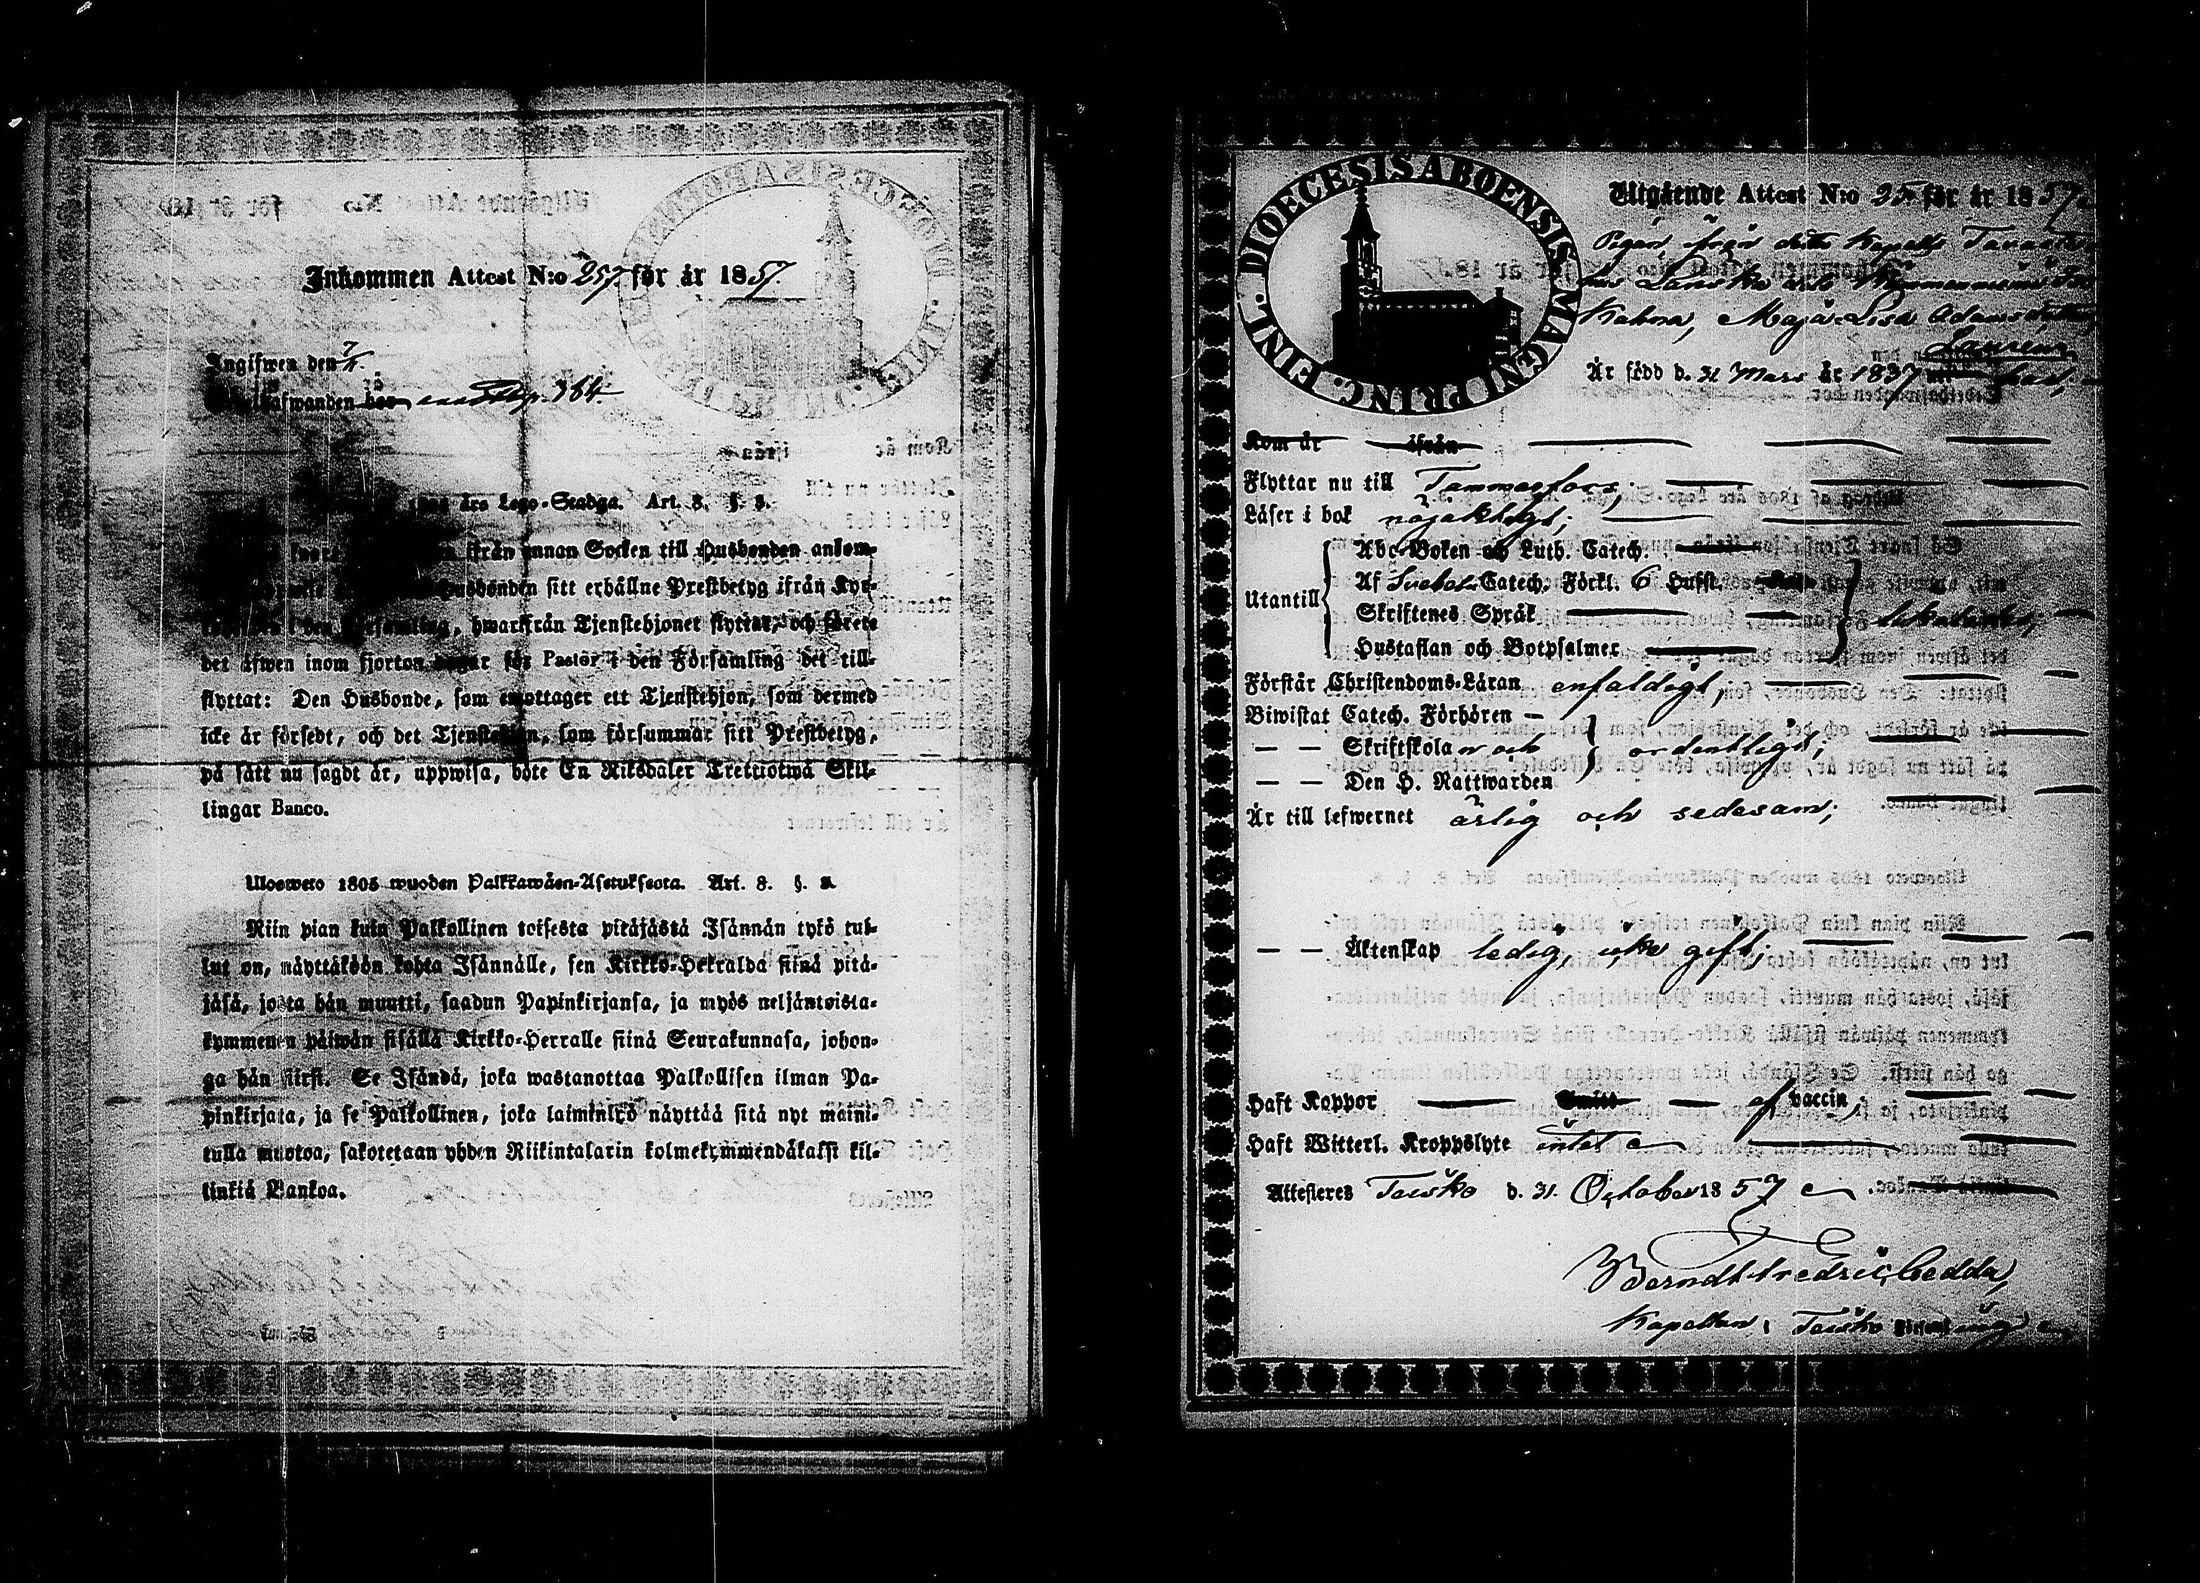 Inkommen Attest N:o 257. för år 1857.
Ingifwen den 7/11.
p. 364.
års Lego-Stadga. Art. 8. §. 2.
ifrån annan Socken till Husbonden ankom-
Husbonden sitt erhållne Prestbetyg ifrån Kyr-
hwarifrån Tjenstehjonet flyttat, och förete
det äfwen inom fjorton dagar för Pastor i den Församling det till-
flyttat: Den Husbonde, som emottager ett Tjenstehjon, som dermed
icke är försedt, och det Tjenstehjon, som försummar sitt Prestbetyg,
på sätt nu sagdt är, uppwisa, böte En Riksdaler Trettiotwå Skil-
lingar Banco.
Ulosweto 1805 wuoden Palkkawäen-Asetuksesta. Art. 8. §. 2.
Niin pian kuin Palkollinen toisesta pitäjästä Isännän tykö tul-
lut on, näyttäköön kohta Isännälle, sen Kirkko-Herralda siinä pitä-
jäsä, josta hän muutti, saadun Papinkirjansa, ja myös neljäntoista-
kymmenen päiwän sisällä Kirkko-Herralle siinä Seurakunnasa, johon-
ga hän siirsi. Se Isändä, joka wastanottaa Palkollisen ilman Pa-
pinkirjata, ja se Palkollinen, joka laiminlyö näyttää sitä nyt maini-
tulla muotoa, sakotetaan yhden Riikintalarin kolmekymmendäkaksi kil-
linkiä Bankoa.
DIOECESIS ABOENSIS MAGNI PRINC. FINL.
Utgående Attest N:o 25 för år 1857
Pigan från detta Kapells
Maja Lisa Adamsdotter
Är född d. 31 Mars år 1837
Kom år ifrån
Flyttar nu till Tammerfors;
Läser i bok nöjaktigt;
Utantill
Abc-Boken och Luth. Catech.
Af Svebel. Catech. Förkl. 6 Hufst.
Skriftenes Språk
Hustaflan och Botpsalmer
Förstår Christendoms-Läran enfaldigt,
Biwistat Catech. Förhören
— — Skriftskolan och ordentligt;
— — Den H. Nattwarden
Är till lefwernet ärlig och sedesam;
— — Äktenskap ledig, icke gift;
Haft Koppor af vaccin;
Haft Witterl. Kroppslyte intet
Attesteres Teisko d. 31. October 1857
Berndt Fredric Cedda,
Kapellan i Teisko